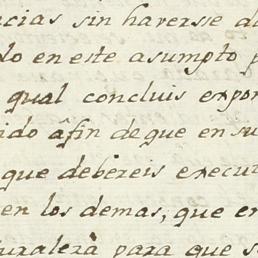 cias sin haverse d
do en este asumpto p
qual concluis expon
ido âfin de que en su
que debereis execu
en los demas, que en
uralera para que s